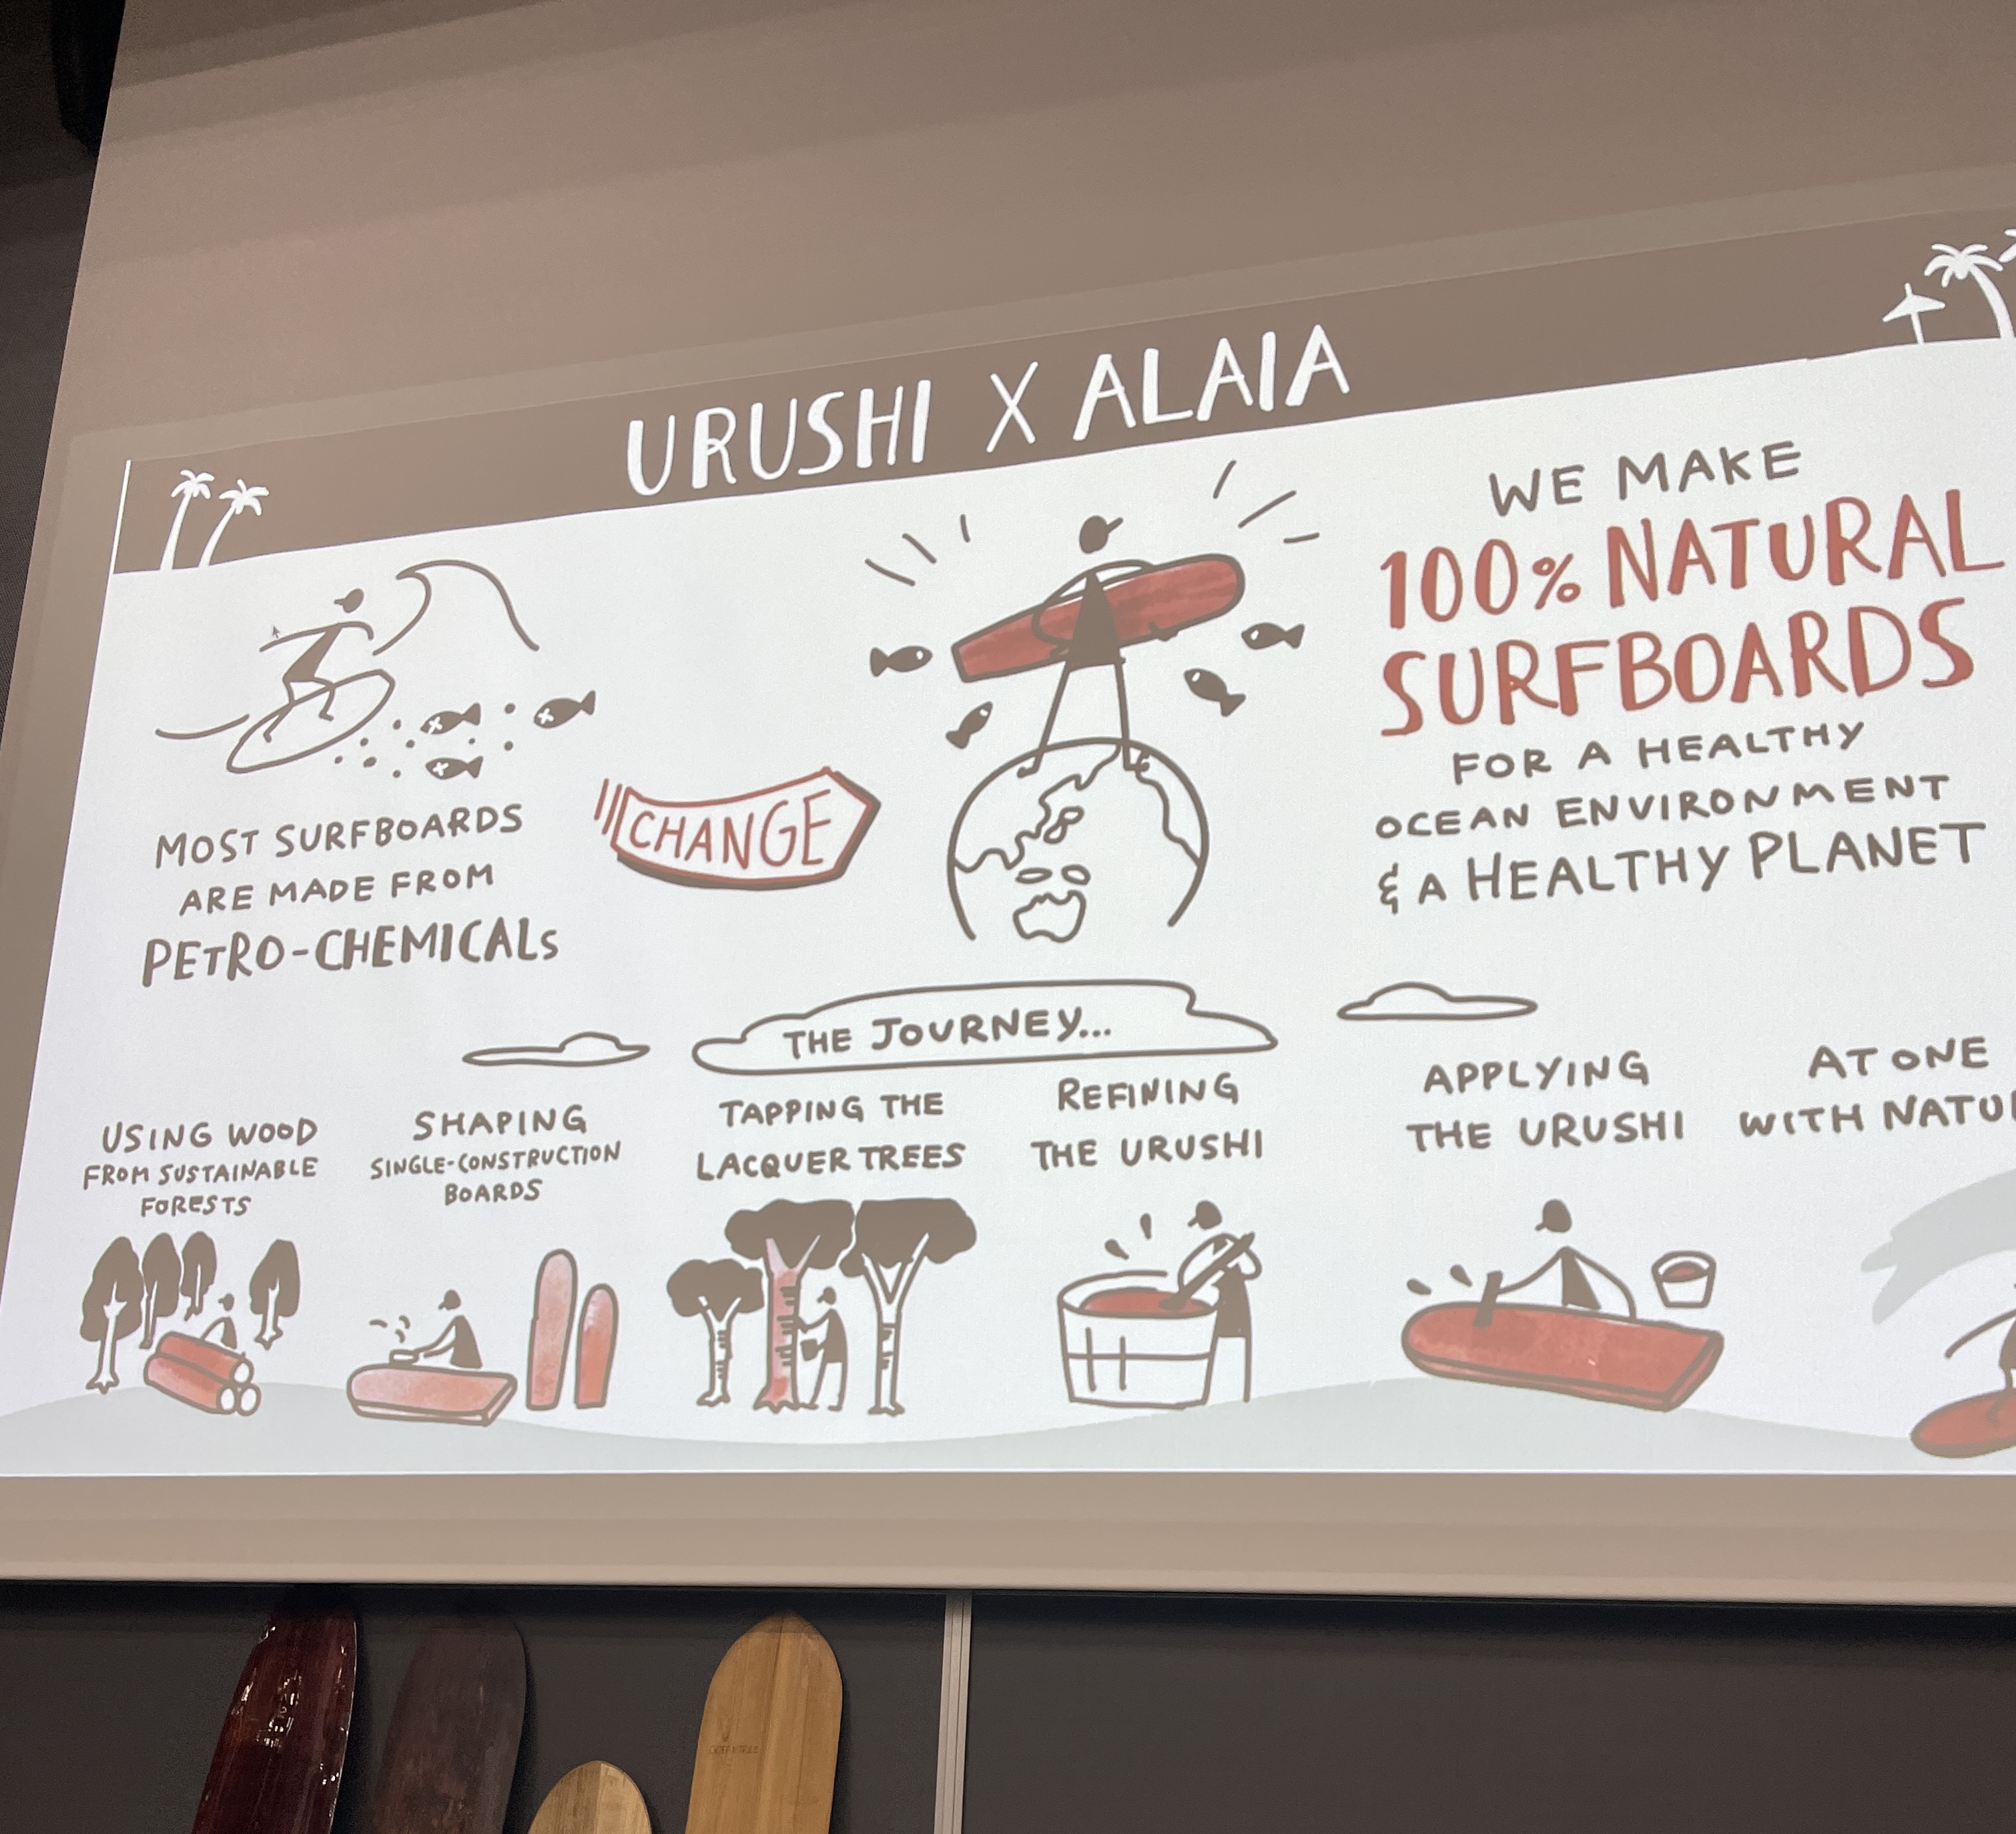 URUSHI X ALAIA
MOST SURFBOARDS
ARE MADE FROM
PETRO-CHEMICALS
CHANGE
WE MAKE
100% NATURAL
SURFBOARDS
FOR A HEALTHY
OCEAN ENVIRONMENT
& A HEALTHY PLANET
THE JOURNEY...
USING WOOD
FROM SUSTAINABLE
FORESTS
SHAPING
SINGLE-CONSTRUCTION
BOARDS
TAPPING THE
LACQUER TREES
REFINING
THE URUSHI
APPLYING
THE URUSHI
AT ONE
WITH